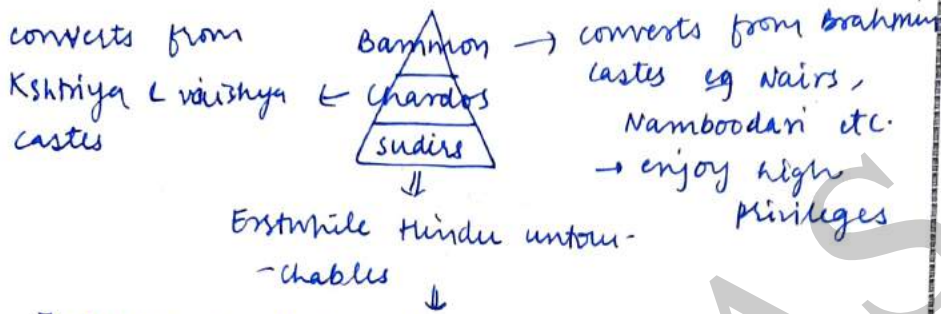 converts from
Kshtriya & vaishya ←
castes
Bammon →
Chardos
sudirs
⇓
converts from Brahmin
castes eg Nairs,
Namboodari etc.
→ enjoy high
privileges
Erstwhile Hindu untou-
-chables
⇓